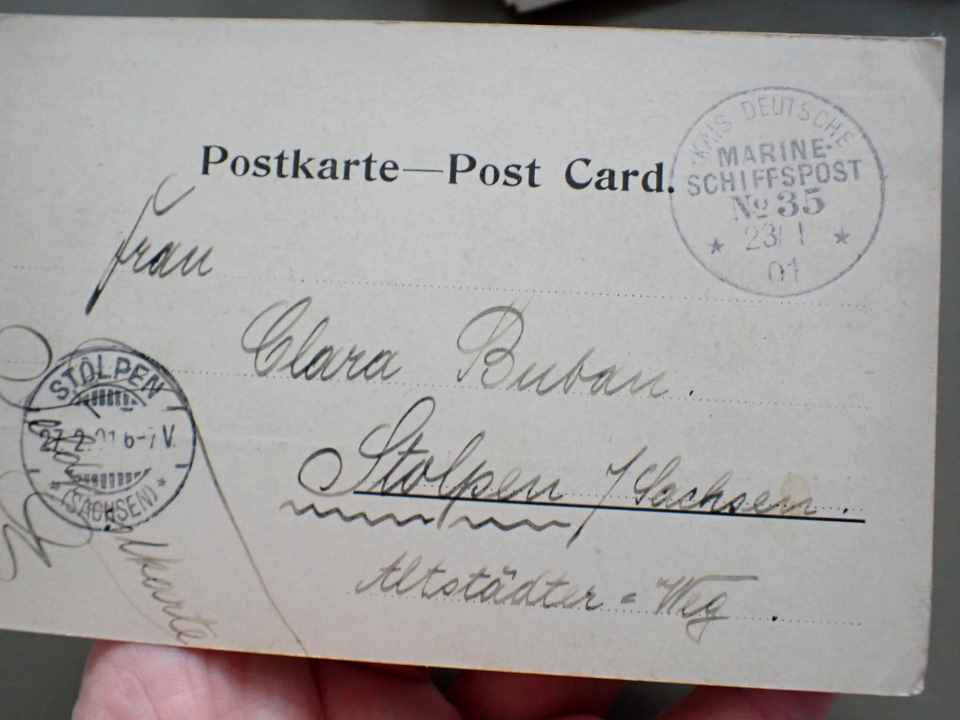 Postkarte—Post Card.
KAIS. DEUTSCHE
MARINE-
SCHIFFSPOST
No 35
* 23/1 *
01
Frau
Clara Buban.
Stolpen /Sachsen.
Altstädter=Weg.
STOLPEN
27.2.01 6-7V.
* (SACHSEN) *